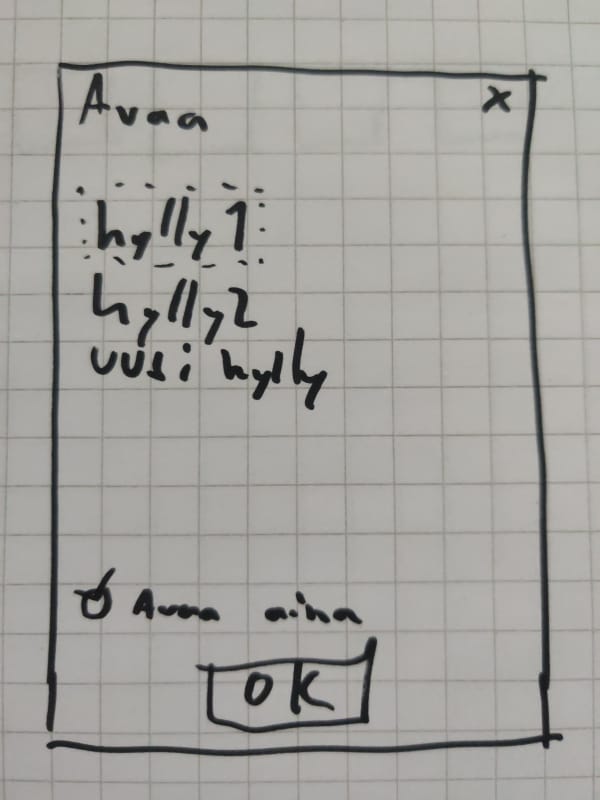 Avaa x
hylly 1
hylly 2
uusi hylly
Avaa aina
OK